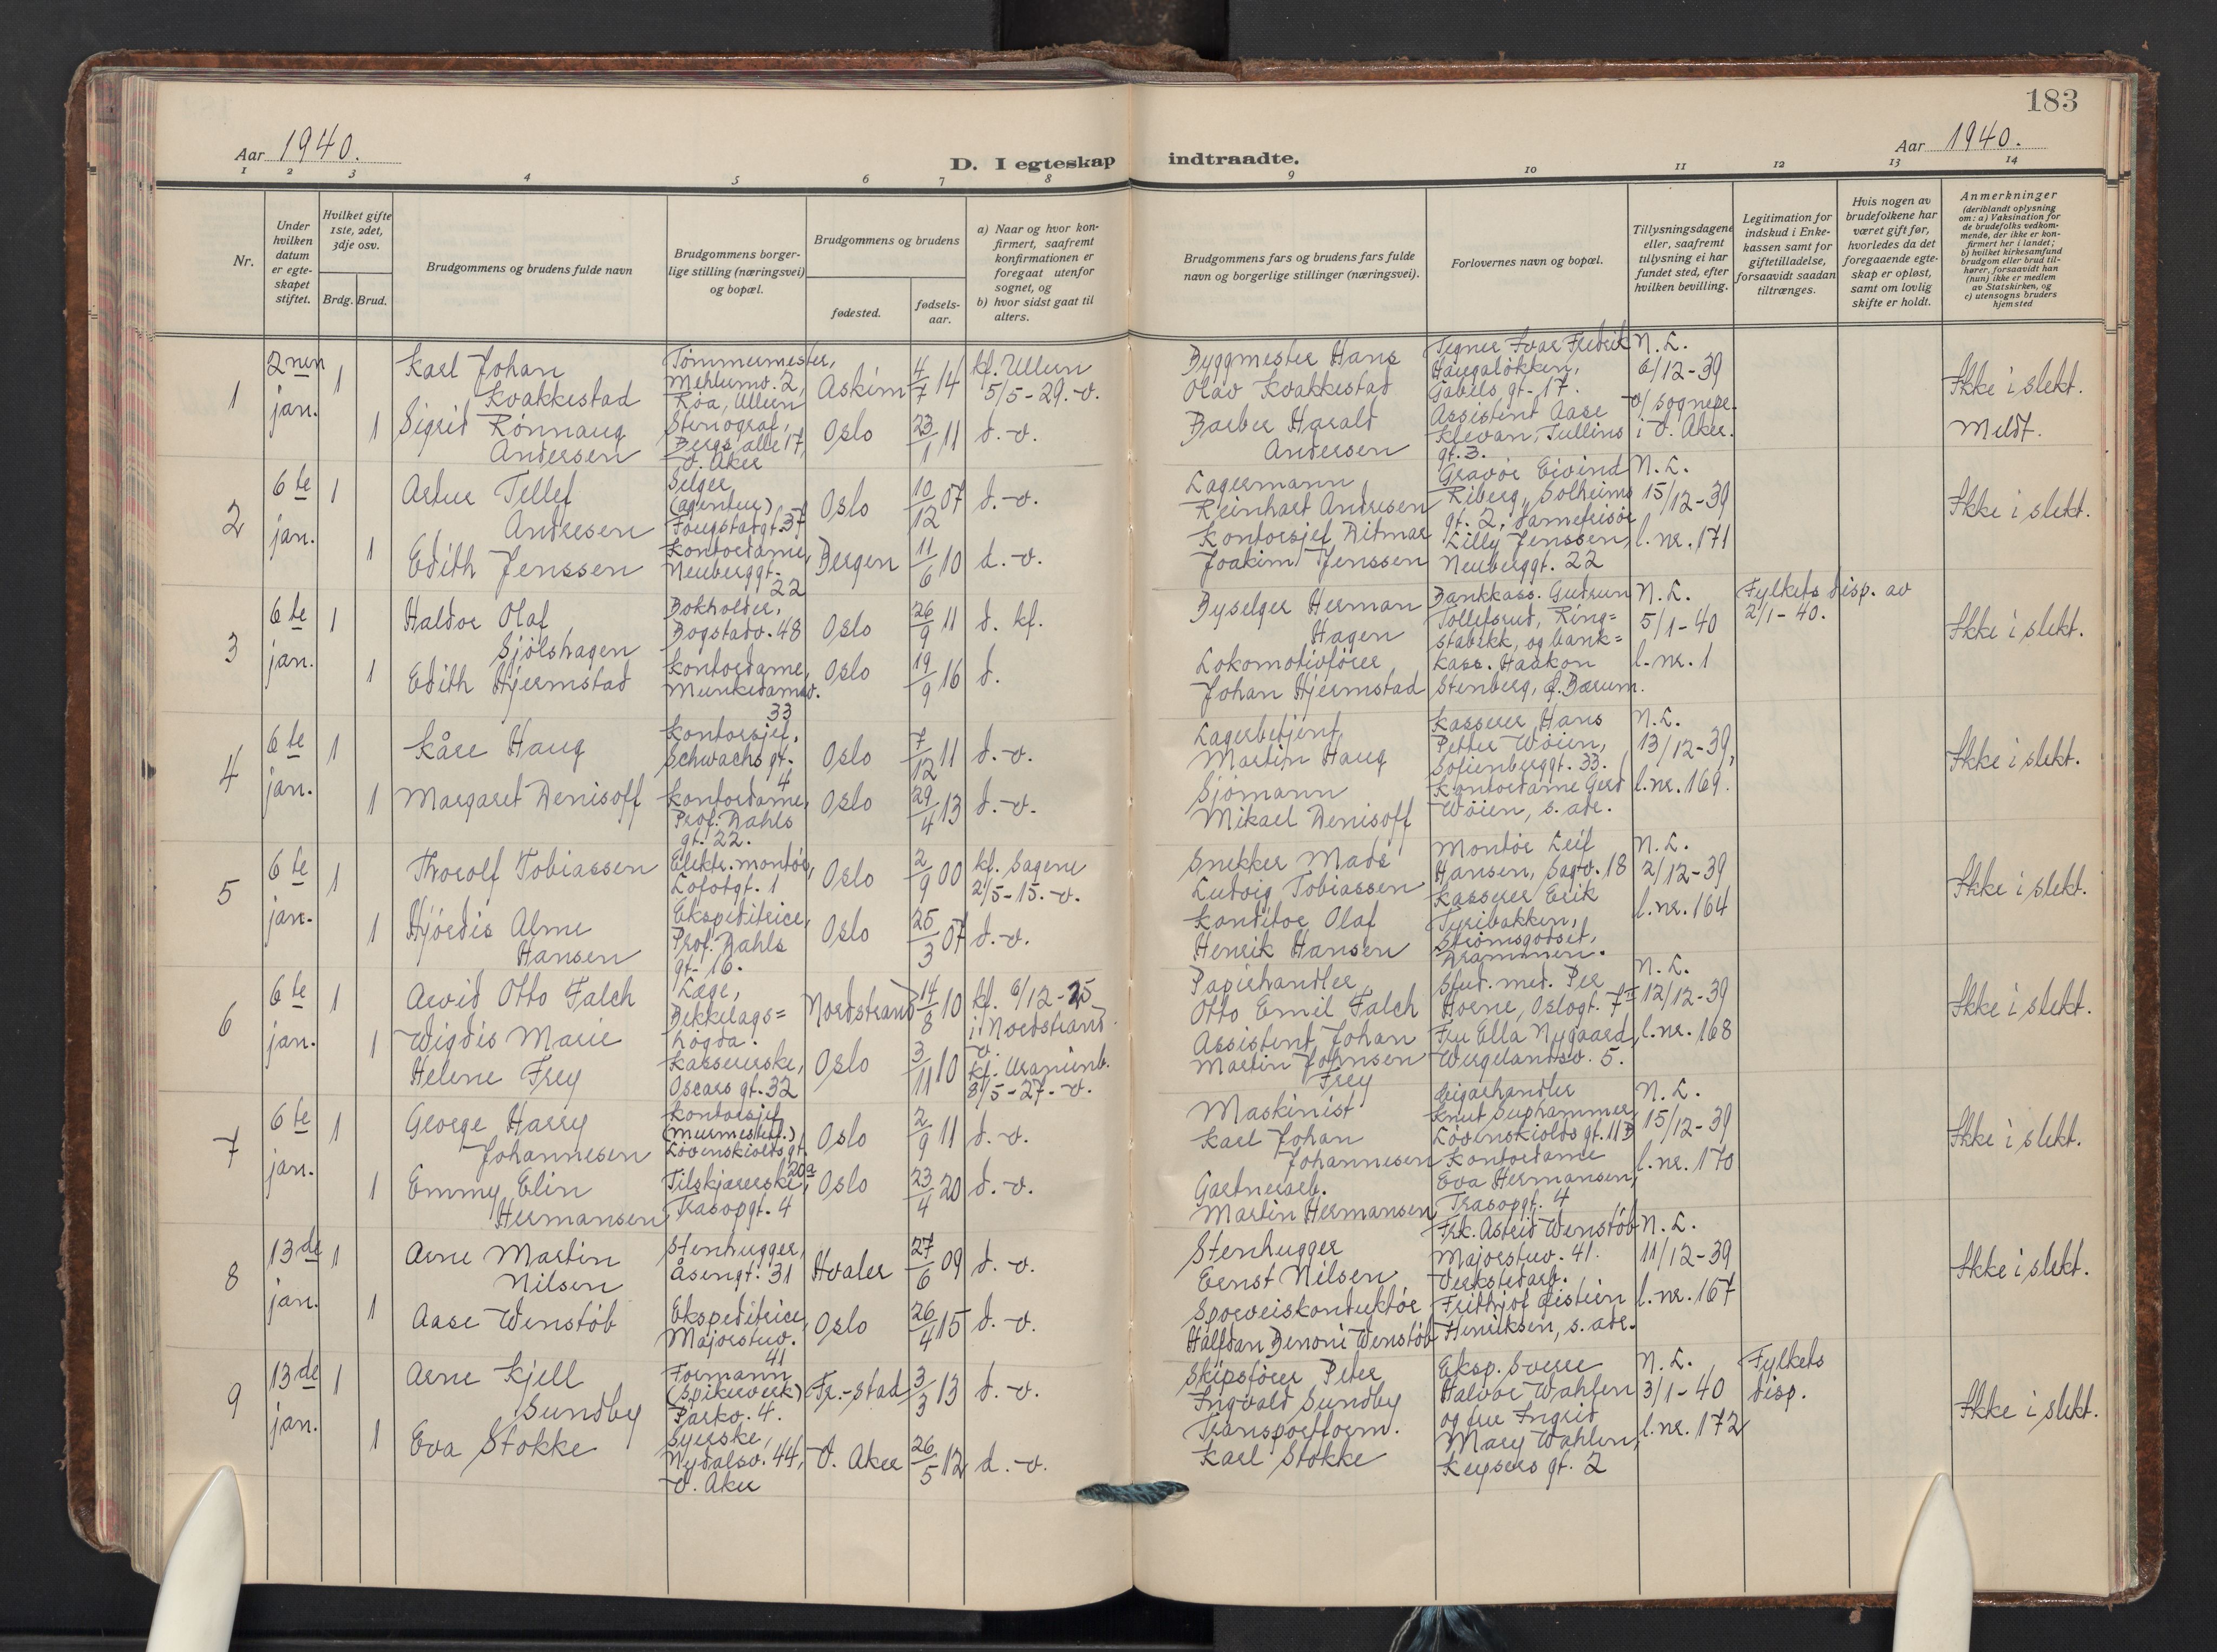 183
Aar 1940.
D. I egteskap indtraadte.
Aar 1940.
1 2 3 4 5 6 7 8 9 10 11 12 13 14
Nr.
Under hvilken datum er egteskapet stiftet.
Hvilket gifte 1ste, 2det, 3dje osv.
Brdg. Brud.
Brudgommens og brudens fulde navn
Brudgommens borgerlige stilling (næringsvei) og bopæl.
Brudgommens og brudens
fødested.
fødselsaar.
a) Naar og hvor konfirmert, saafremt konfirmationen er foregaat utenfor sognet, og
b) hvor sidst gaat til alters.
Brudgommens fars og brudens fars fulde navn og borgerlige stillinger (næringsvei).
Forlovernes navn og bopæl.
Tillysningsdagene eller, saafremt tullysning ei har fundet sted, efter hvilken bevilling.
Legitimation for indskud i Enkekassen samt for giftetilladelse, forsaavidt saadan tiltrænges.
Hvis nogen av brudefolkene har været gift før, hvorledes da det foregaaende egteskap er opløst, samt om lovlig skifte er holdt.
Anmerkninger
(deriblandt oplysning om: a) Vaksination for de brudefolks vedkommende, der ikke er konfirmert her i landet;
b) hvilket kirkesamfund brudgom eller brud tilhører, forsaavidt han (hun) ikke er medlem av Statskirken, og
c) utensogns bruders hjemsted
1
2nen jan.
1
Karl Johan Kvakkestad
Tømmermester, Mehlumv. 2, Røa, Ullern
Askim
4/7 14
kf. Ullern 5/5-29. v.
Byggmester Hans Olav Kvakkestad
Tegner Ivar Fredrik Haugaløkken, Gabels gt. 17.
N. L. 6/12-39
Ikke i slekt.
1
Sigrid Rønnaug Andersen
Stenograf, Bergs allé 17, V. Aker
Oslo
23/1 11
d. v.
Barber Harald Andersen
Assistent Aase Klevan, Tullins gt. 3.
v/ sognepr. i V. Aker.
Meldt.
2
6te jan.
1
Artur Tellef Andresen
Selger (agentur) Fougstadgt. 37
Oslo
10/12 07
d. v.
Lagermann Reinhart Andresen
Gravør Eivind Riberg, Solheimsgt. 2, Damefrisør
N. L. 15/12-39
Ikke i slekt.
1
Edith Jenssen
Kontordame, Neuberggt. 22
Bergen
11/6 10
d. v.
Kontorsjef Ditmar Joakim Jenssen
Lilly Jenssen, Neuberggt. 22
l. nr. 171
3
6te jan.
1
Haldor Olaf Sjølshagen
Bokholder, Bogstadv. 48
Oslo
26/9 11
d. kf.
Byselger Herman Hagen
Bankkass. Gudrun Tollefsrud, Ring=stabekk, og bank=
N. L. 5/1-40
Fylkets disp. av 2/1-40.
Ikke i slekt.
1
Edith Hjermstad
Kontordame, Munkedamsv. 33
Oslo
19/9 16
d.
Lokomotivfører Johan Hjermstad
kass. Haakon Stenberg, Ø. Bærum.
l. nr. 1
4
6te jan.
1
Kåre Haug
Kontorsjef, Schwachs gt. 4
Oslo
7/12 11
d. v.
Lagerbetjent Martin Haug
Kasserer Hans Petter Wøien, Sofienberggt. 33.
N. L. 13/12-39,
Ikke i slekt.
1
Margaret Denisoff
Kontordame, Prof. Dahls gt. 22.
Oslo
29/4 13
d. v.
Sjømann Mikael Denisoff
Kontordame Gerd Wøien, s. adr.
l. nr. 169.
5
6te jan.
1
Thorolf Tobiassen
Elektr. montør, Lofotgt. 1
Oslo
2/9 00
kf. Sagene 2/5-15. v.
Snekker Mads Ludvig Tobiassen
Montør Leif Hansen, Sagv. 18
N. L. 2/12-39
Ikke i slekt.
1
Hjørdis Alme Hansen
Ekspeditrice, Prof. Dahls gt. 16.
Oslo
25/3 07
d. v.
Konditor Olaf Henrik Hansen
Kasserer Erik Tyribakken, Strømsgodset, Drammen.
l. nr. 164
6
6te jan.
1
Arvid Otto Falch
Læge, Bekkelags=høgda.
Nordstrand
14/8 10
kf. 6/12-25 i Nordstrand. v.
Papirhandler Otto Emil Falch
Stud. med. Per Horne, Oslogt. 7 II
N. L. 12/12-39
Ikke i slekt.
1
Wigdis Marie Helene Frey
Kassererske, Oscars gt. 32
Oslo
3/11 10
kf. Uranienb. 8/5-27. v.
Assistent Johan Martin Johnsen Frey
Fru Ella Nygaard, Wergelandsv. 5.
l. nr. 168
7
6te jan.
1
George Harry Johannesen
Kontorsjef (murmesterf.) Løvenskiolds gt. 20a
Oslo
2/9 11
d. v.
Maskinist Karl Johan Johannesen
Sigarhandler Knut Suphammer Løvenskiolds gt. 11 B
N. L. 15/12-39
Ikke i slekt.
1
Emmy Elin Hermansen
Tilskjærerske, Trasopgt. 4
Oslo
23/4 20
d. v.
Gartnerarb. Martin Hermansen
Kontordame Eva Hermansen, Trasopgt. 4
l. nr. 170
8
13de jan.
1
Arne Martin Nilsen
Stenhugger, Åsengt. 31
Hvaler
27/6 09
d. v.
Stenhugger Ernst Nilsen
Frk. Astrid Wenstøb Majorstuv. 41.
N. L. 11/12-39
Ikke i slekt.
1
Aase Wenstøb
Ekspeditrice, Majorstuv. 41
Oslo
26/4 15
d. v.
Sporveiskonduktør Halfdan Benoni Wenstøb
Verkstedarb. Fridthjof Øistein Henriksen, s. adr.
l. nr. 167
9
13de jan.
1
Arne Kjell Sundby
Formann (Spikerverk) Parkv. 4.
Fr.-stad
3/3 13
d. v.
Skipsfører Peter Ingvald Sundby
Eksp. Sverre Halvor Wahlen
N. L. 3/1-40
Fylkets disp.
Ikke i slekt.
1
Eva Stokke
Syerske, Nydalsv. 44, V. Aker
V. Aker
26/5 12
d. v.
Transportform. Karl Stokke
og fru Ingrid Mary Wahlen, Keysers gt. 2
l. nr. 172